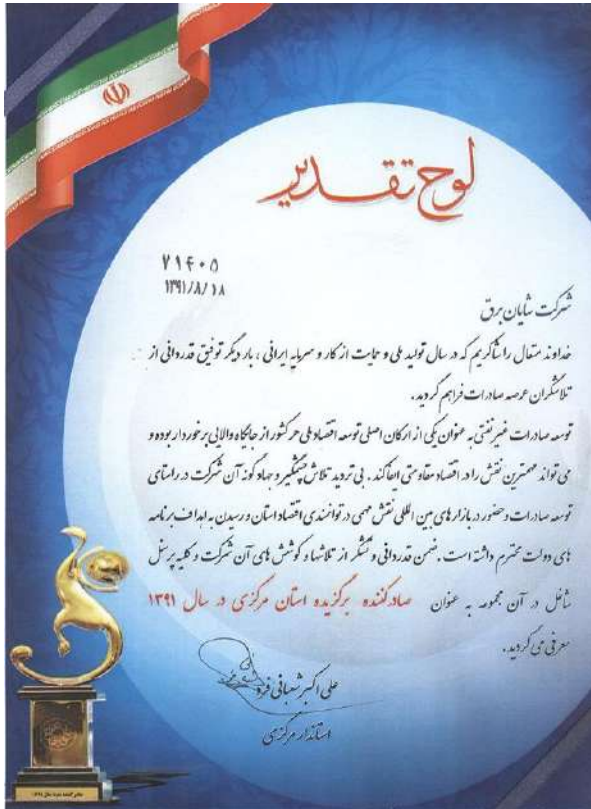 لوح تقدیر
۷۱۴۰۵
۱۳۹۱/۸/۱۸
شرکت شایان برق
خداوند متعال را شاکریم که در سال تولید ملی و حمایت از کار و سرمایه ایرانی ، بار دیگر توفیق قدردانی از
تلاشگران عرصه صادرات فراهم گردید.
توسعه صادرات غیر نفتی به عنوان یکی از ارکان اصلی توسعه اقتصاد ملی هر کشور از جایگاه والایی برخوردار بوده و
می تواند مهمترین نقش را در اقتصاد مقاومتی ایفا کند . بی تردید تلاش چشمگیر و جهاد گونه آن شرکت در راستای
توسعه صادرات و حضور در بازار های بین المللی نقش مهمی در توانمندی اقتصاد استان و رسیدن به اهداف برنامه
های دولت محترم داشته است . ضمن قدردانی و تشکر از تلاشها و کوشش های آن شرکت و کلیه پرسنل
شاغل در آن مجموعه به عنوان صادرکننده برگزیده استان مرکزی در سال ۱۳۹۱
معرفی می گردید.
علی اکبر شعبانی فرد
استاندار مرکزی